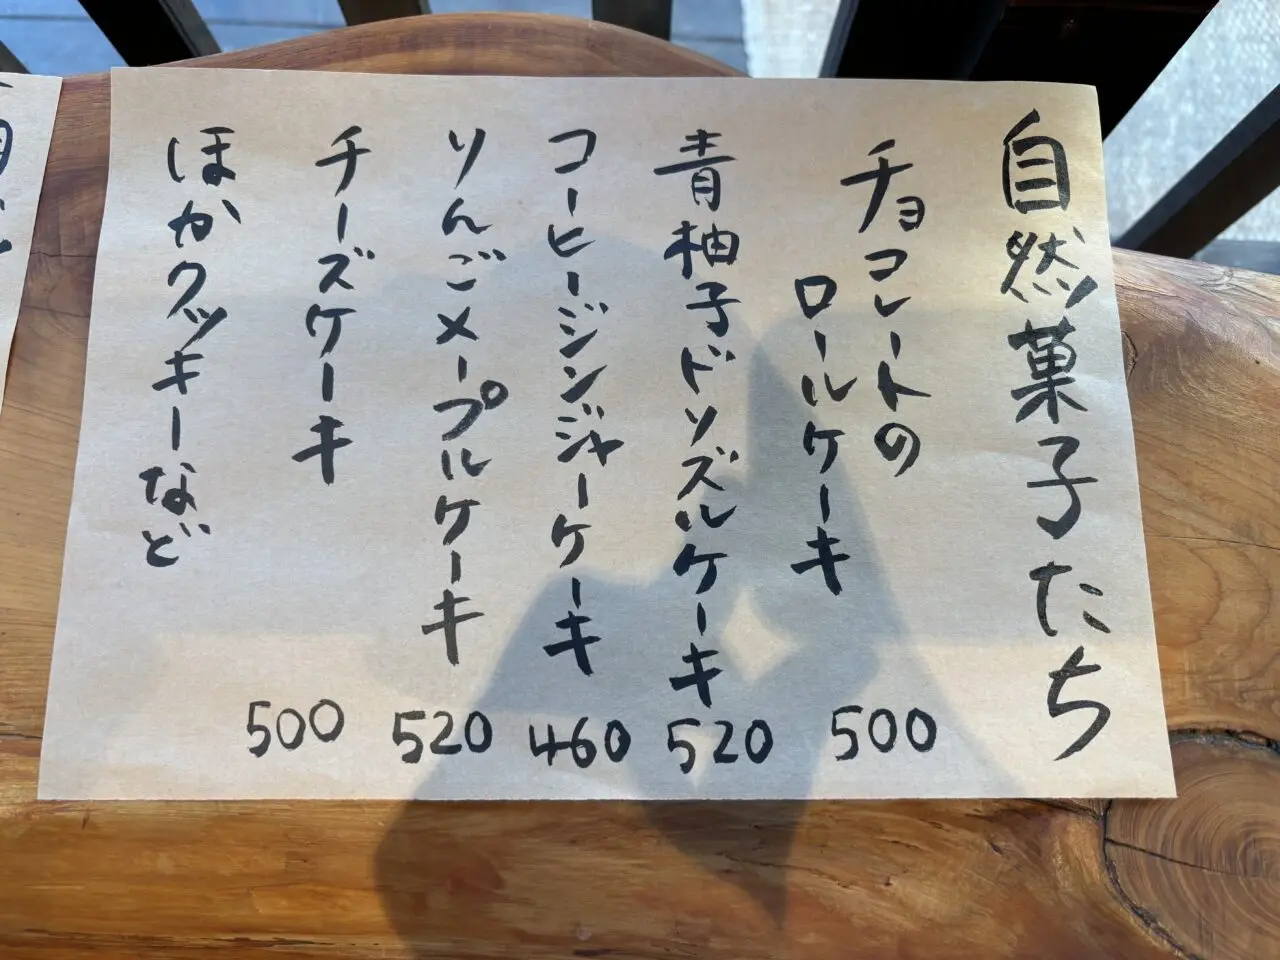 自然菓子たち
チョコレートの
ロールケーキ 500
青柚子ドソズルケーキ 520
コーヒージンジャーケーキ 460
りんごメープルケーキ 520
チーズケーキ 500
ほかクッキーなど